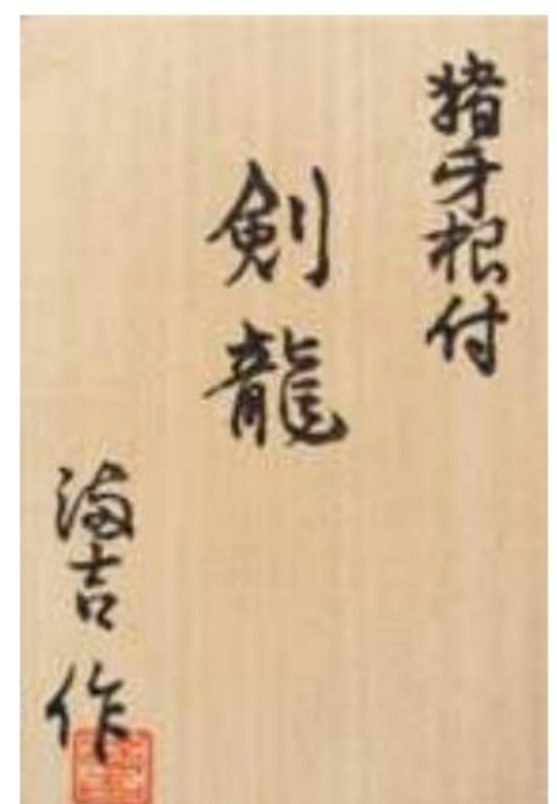 猪牙根付
剣龍
満吉作